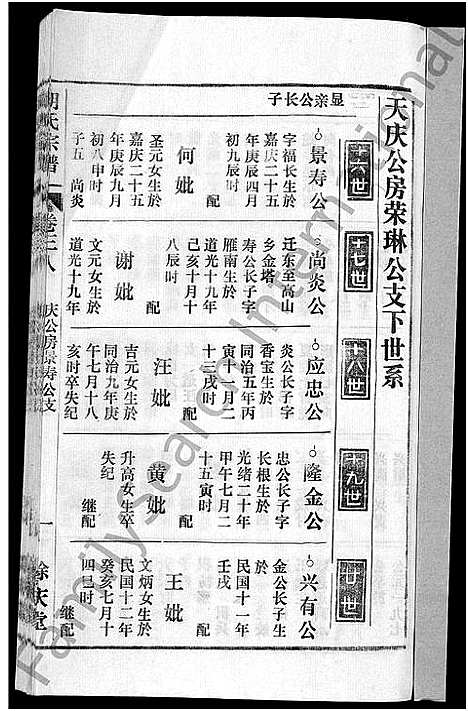 天庆公房荣琳公支下世系
十六世
十七世
十八世
十九世
廿世
显亲公长子
景寿公
字福长生於
嘉庆二十五
年庚辰四月
初九辰时
配
何妣
圣元女生於
嘉庆二十五
年庚辰九月
初八申时
子五 尚炎
尚炎公
迁东至高山
乡金塔
寿公长子字
雁南生於
道光十九年
己亥十月十
八辰时
配
谢妣
文元女生於
道光十九年
应忠公
炎公长子字
香宝生於
同治五年丙
寅十一月二
十三戌时
配
汪妣
吉元女生於
同治九年庚
午七月十八
亥时卒失纪
隆金公
忠公长子字
长根生於
光绪二十年
甲午七月二
十五寅时
配
黄妣
升高女生卒
失纪
继配
兴有公
金公长子生
於
民国十一年
壬戌
配
王妣
文炳女生於
民国十二年
癸亥七月十
四巳时
继配
氏宗谱
卷三八
庆公房景寿公支
一
馀庆堂
Family Search International